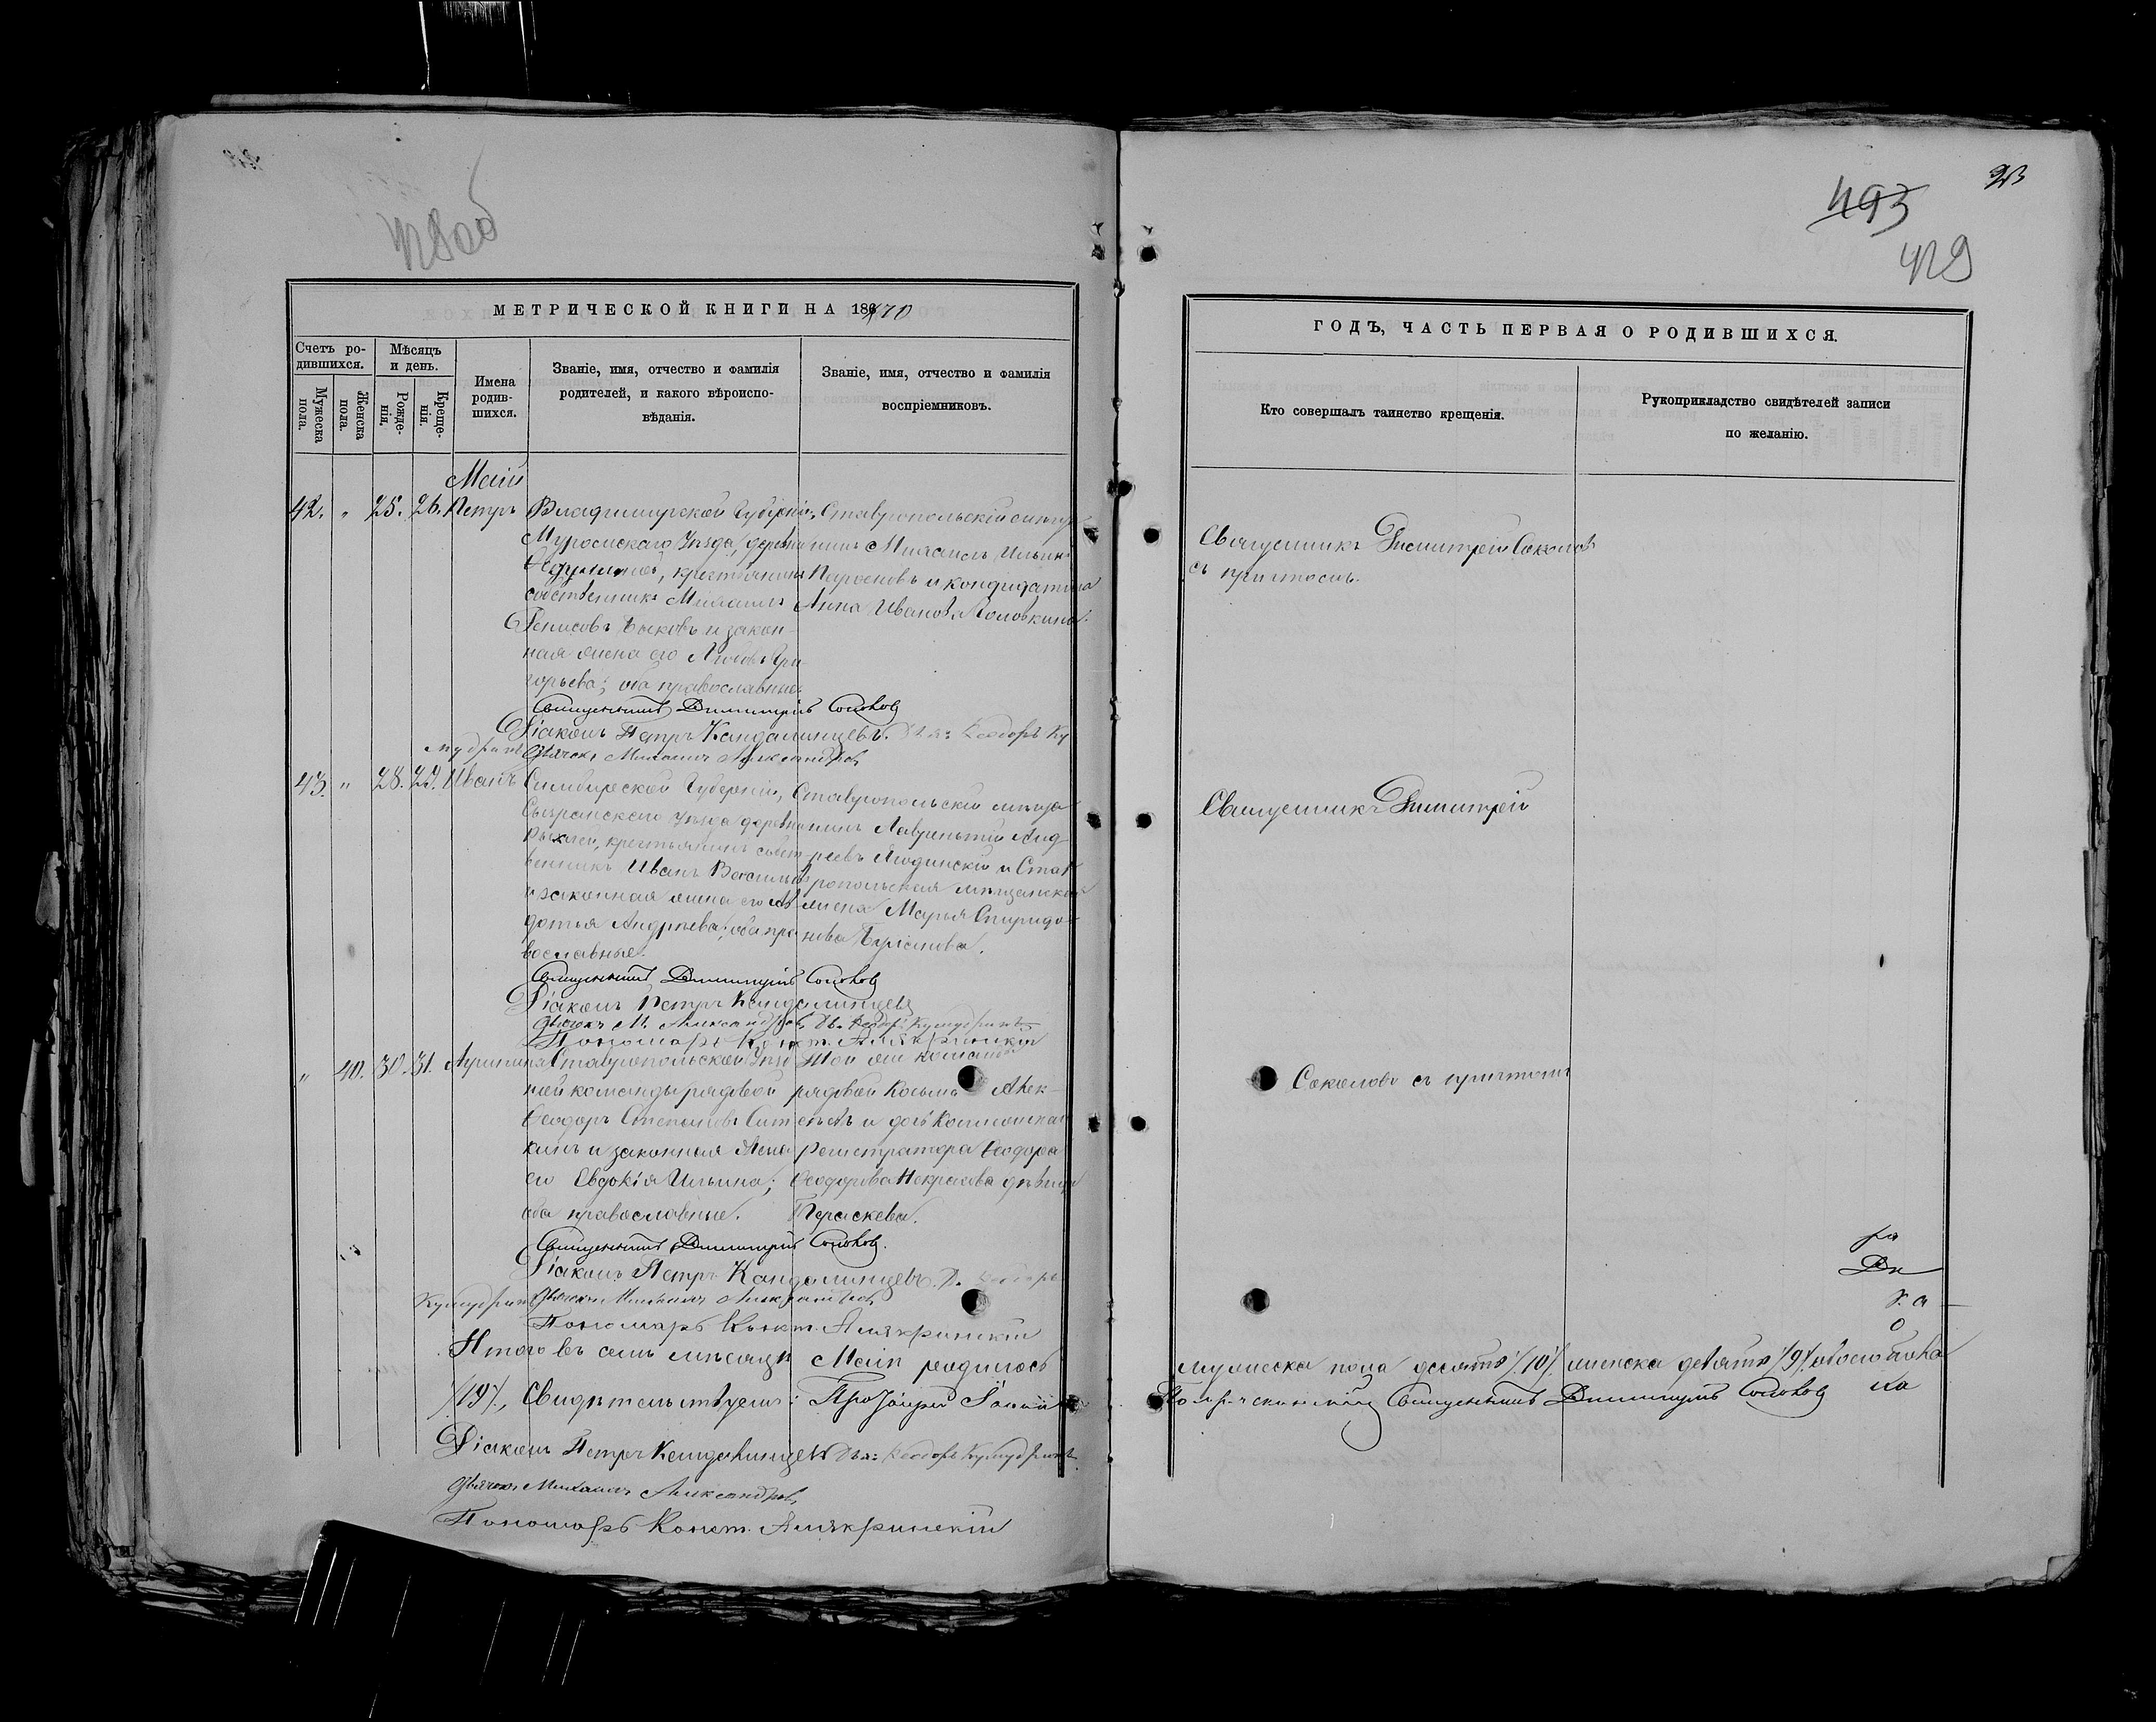 428об
МЕТРИЧЕСКОЙ КНИГИ НА 1870
Счетъ ро-
дившихся.
Мужеска
пола.
Женска
пола.
Мѣсяцъ
и день.
Рожде-
нія.
Креще-
нія.
Имена
родив-
шихся.
Званіе, имя, отчество и фамилія
родителей, и какого вѣроиспо-
вѣданія.
Званіе, имя, отчество и фамилія
воспріемниковъ.
Маій
42. " 25. 26. Петръ
Владимирской Губерніи,
Муромскаго Уѣзда, деревни
крестьянинъ
собственникъ Михаилъ
Денисовъ Быковъ и закон-
ная жена его Любовь Гри-
горьева; оба православные.
Ставропольскій мѣща-
нинъ Михаилъ Ильинъ
и кондидатша
Анна Иванова
Священникъ Димитрій Соколовъ
Діаконъ Петръ Кандалинцевъ. Дья: Ѳеодоръ Ку
мудринъ
Дьячекъ Михаилъ Александровъ
43. " 28. 29. Иванъ
Симбирской Губерніи,
Сызранскаго Уѣзда деревни
крестьянинъ собст
венникъ Иванъ Васильевъ
и законная жена его Ав
дотья Андреева; оба пра
вославные.
Ставропольскій мѣща
нинъ Лаврентій Анд
реевъ Ягодинскій и Став
ропольская мѣщанская
жена Марья Спиридо-
нова
Священникъ Димитрій Соколовъ
Діаконъ Петръ Кандалинцевъ
Дьячекъ М. Александровъ, Дья. Ѳеодоръ Кумудринъ
Пономарь Конст. Алякринскій
" 40. 30. 31. Агрипина
Ставропольской Уѣзд
ной команды рядовой
Ѳеодоръ Степановъ Сит
кинъ и законная жена
его Евдокія Ильина;
оба православные.
Той же команды
рядовой Косьма Алек-
сѣевъ и дочь Коллежскаго
Регистратора Ѳеодора
Ѳеодорова Некрасова дѣвица
Параскева.
Священникъ Димитрій Соколовъ.
Діаконъ Петръ Кандалинцевъ. Д. Ѳеодоръ
Кумудринъ
Дьячекъ Михаилъ Александровъ
Пономарь Конст. Алякринскій
Итого въ семъ мѣсяцѣ Маіѣ родилось
/19/, Свидѣтельствуемъ:
Діаконъ Петръ Кандалинцевъ Дья: Ѳеодоръ Кумудринъ
Дьячекъ Михаилъ Александровъ
Пономарь Конст. Алякринскій
493
429
ГОДЪ, ЧАСТЬ ПЕРВАЯ О РОДИВШИХСЯ.
Кто совершалъ таинство крещенія.
Рукоприкладство свидѣтелей записи
по желанію.
Священникъ Димитрій Соколовъ
съ причтомъ.
Священникъ Димитрій
Соколовъ съ причтомъ
мужеска пола десять /10/ женска девять /9/ обоего пола
Священникъ Димитрій Соколовъ